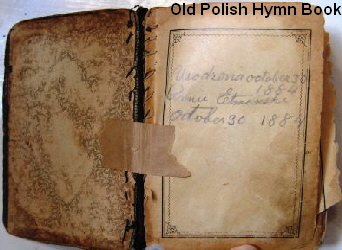 Old Polish Hymn Book
Urodzona october 30
1884
Etmanski
October 30 1884